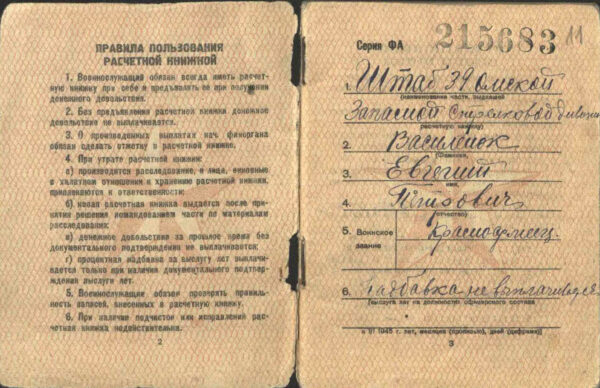 ПРАВИЛА ПОЛЬЗОВАНИЯ
РАСЧЕТНОЙ КНИЖКОЙ
1. Военнослужащий обязан всегда иметь расчет-
ную книжку при себе и предъявлять ее при получении
денежного довольствия.
2. Без предъявления расчетной книжки денежное
довольствие не выплачивается.
3. О произведенных выплатах нач. финоргана
обязан сделать отметку в расчетной книжке.
4. При утрате расчетной книжки:
а) производится расследование, и лица, виновные
в халатном отношении к хранению расчетной книжки,
привлекаются к ответственности;
б) новая расчетная книжка выдается после при-
нятия решения командованием части по материалам
расследования;
в) денежное довольствие за прошлое время без
документального подтверждения не выплачивается;
г) процентная надбавка за выслугу лет выплачи-
вается только при наличии документального подтверж-
дения выслуги лет.
5. Военнослужащий обязан проверять правиль-
ность записей, внесенных в расчетную книжку.
6. При наличии подчисток или исправлений рас-
четная книжка недействительна.
2
Серия ФА 215683 11
1. Штаб 39 Омской
(наименование части, выдавшей
Запасной Стрелковой дивизии
расчетную книжку)
2. Василенок
(фамилия,
3. Евгений
имя,
4. Петрович
отчество)
5. Воинское звание Красноармеец
6. Надбавка не выплачивается
(выслуга лет на должностях офицерского состава
к 1/I 1945 г. лет, месяцев (прописью), дней (цифрами))
3